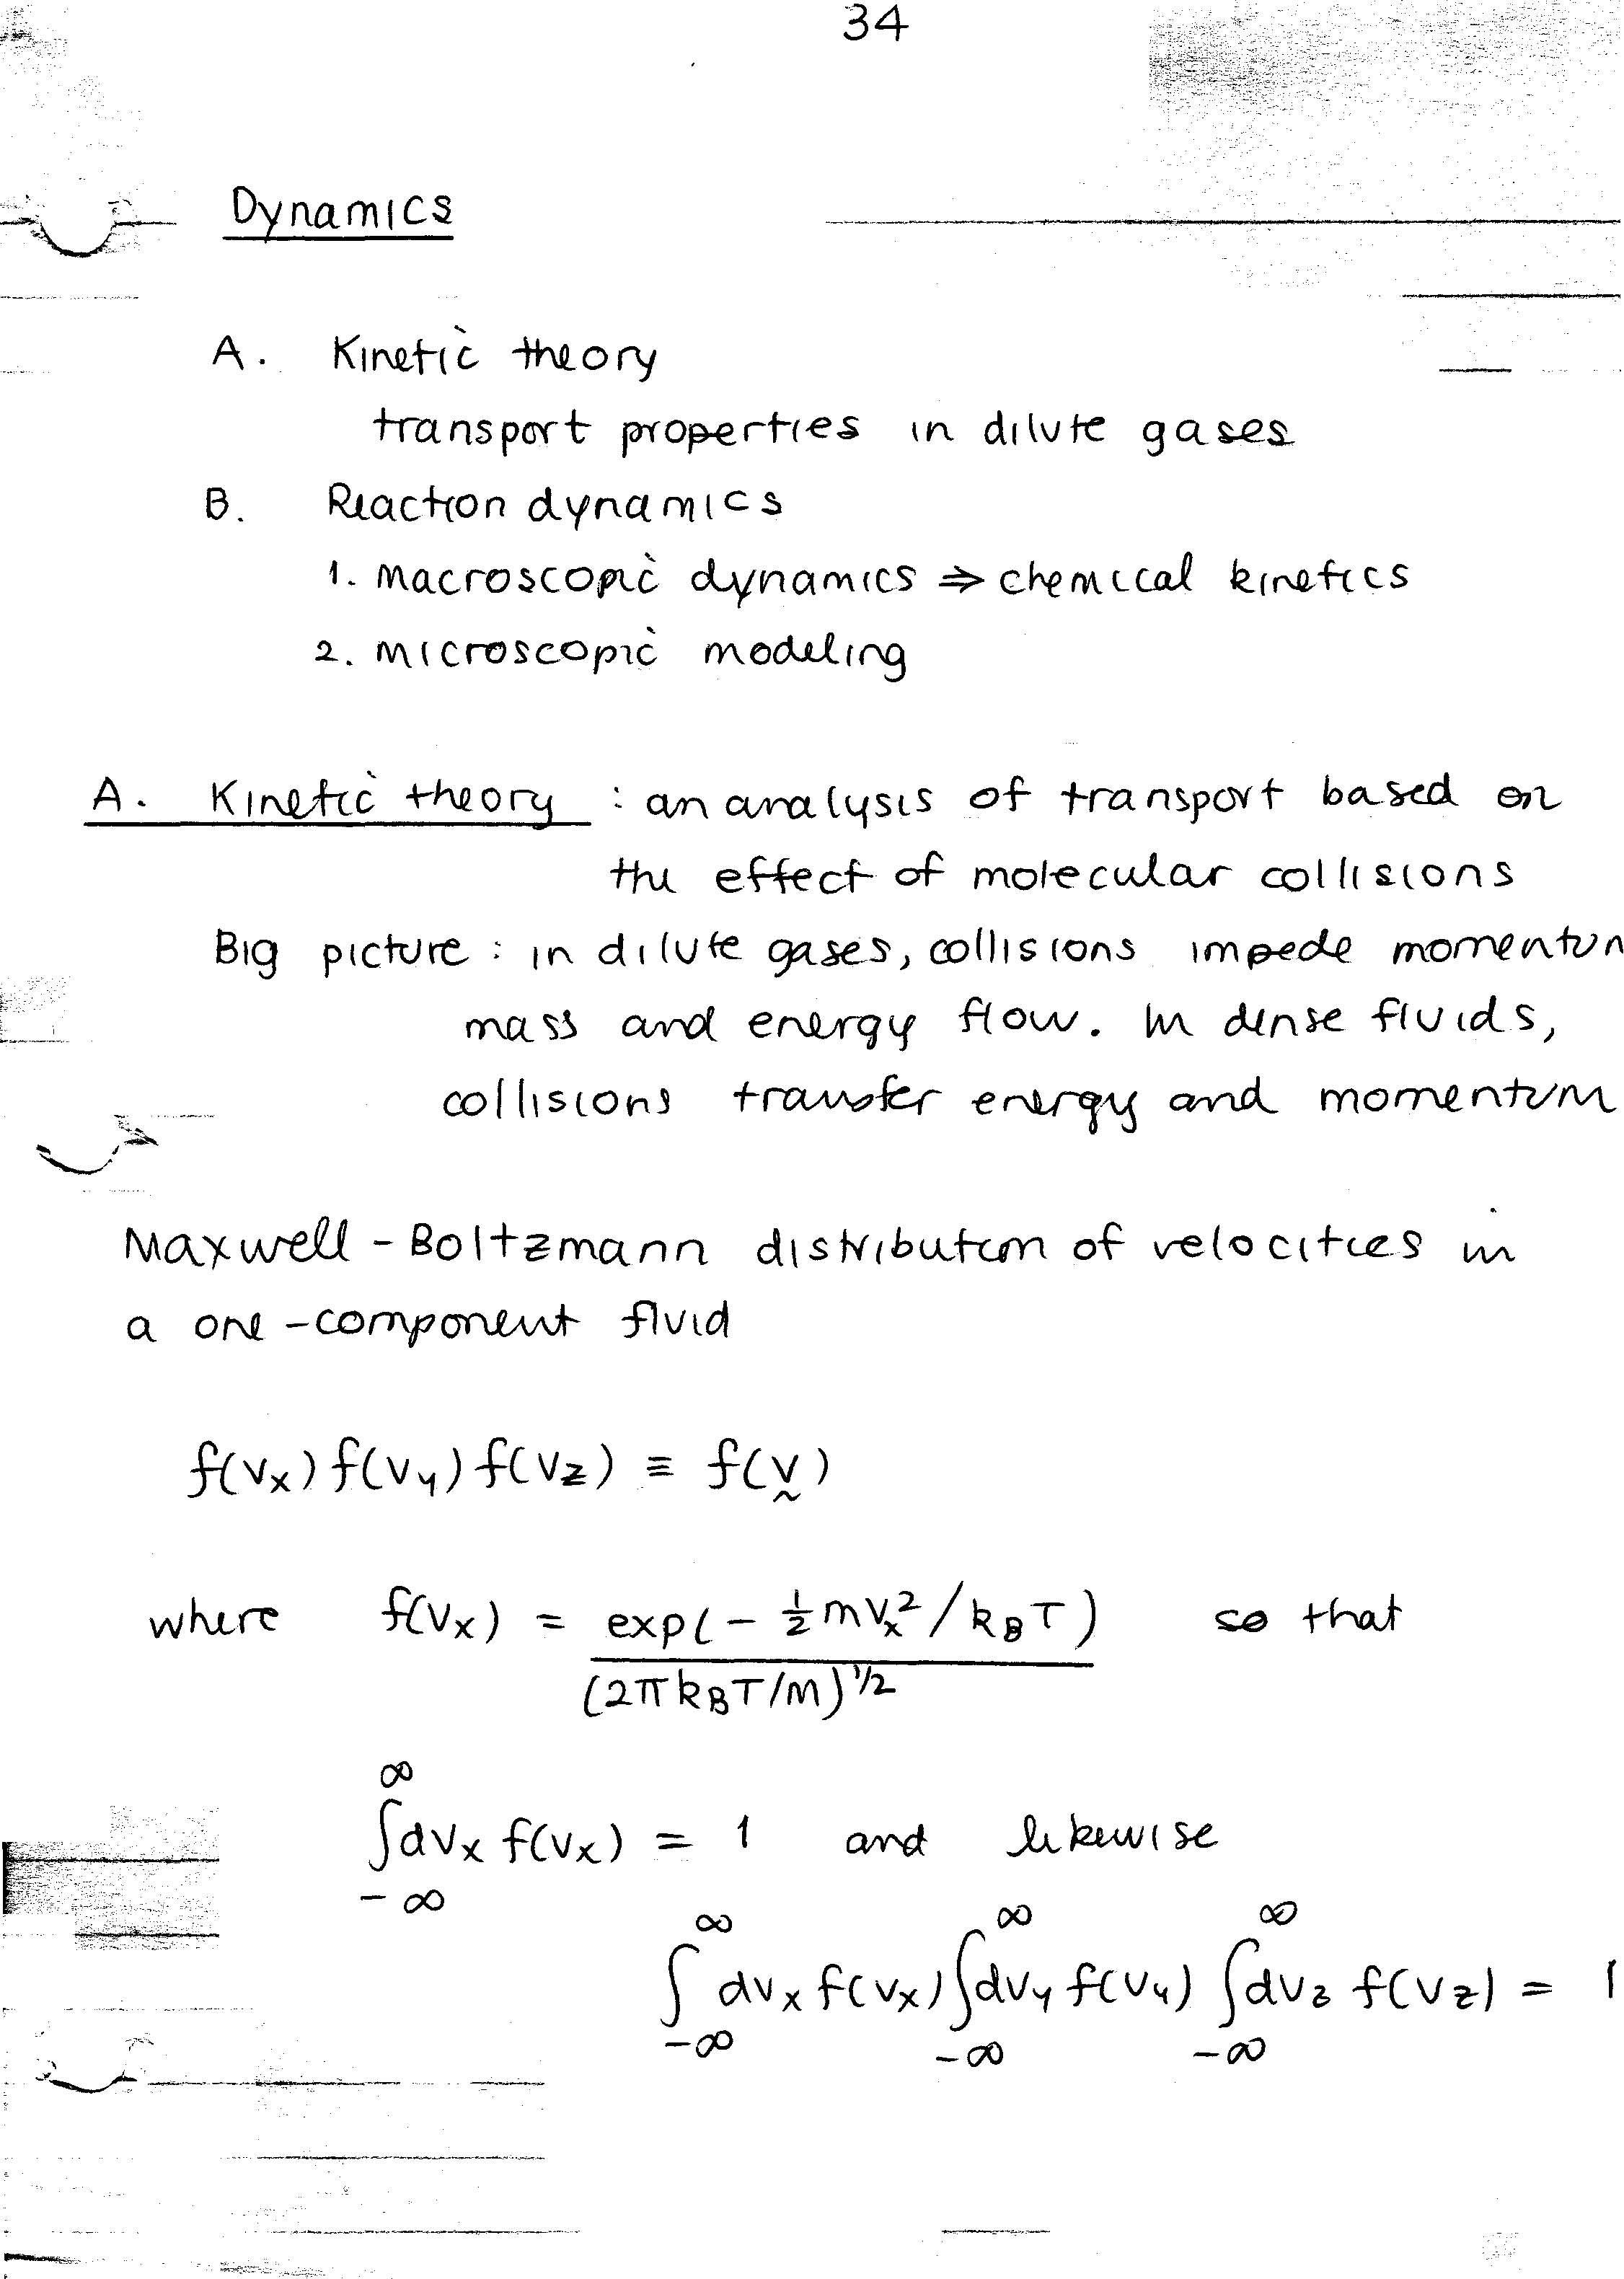 34
Dynamics
A. Kinetic theory
transport properties in dilute gases
B. Reaction dynamics
1. Macroscopic dynamics ⇒ chemical kinetics
2. Microscopic modeling
A. Kinetic theory : an analysis of transport based on
the effect of molecular collisions
Big picture : in dilute gases, collisions impede momentum
mass and energy flow. In dense fluids,
collisions transfer energy and momentum
Maxwell - Boltzmann distribution of velocities in
a one-component fluid
f(v_x) f(v_y) f(v_z) ≡ f(v̰)
where f(v_x) = exp(- ½ m v_x² / k_B T) / (2π k_B T/m)^{1/2} so that
∫_{-∞}^{∞} dv_x f(v_x) = 1 and likewise
∫_{-∞}^{∞} dv_x f(v_x) ∫_{-∞}^{∞} dv_y f(v_y) ∫_{-∞}^{∞} dv_z f(v_z) = 1